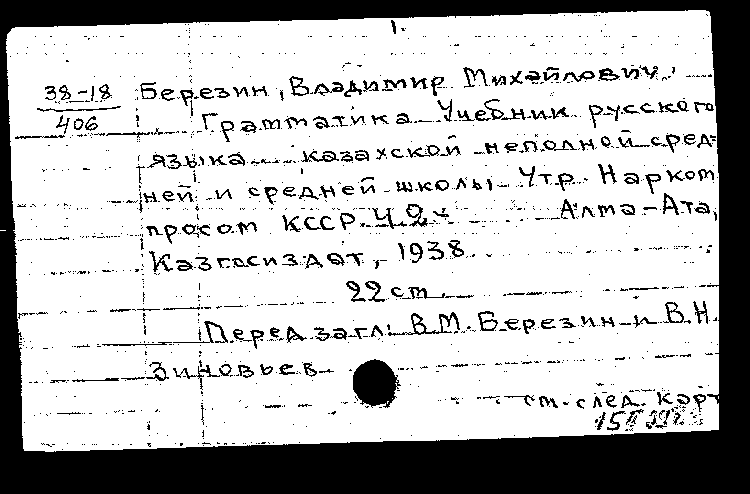 1.
38-18 Березин, Владимир Михайлович.
406 Грамматика Учебник русского
языка казахской неполной сред-
ней и средней школы Утр. Нарком
просом КССР. Ч. 2 Алма-Ата,
Казгосиздат, 1938.
22 cm.
Перед загл: В.М. Березин и В.Н.
Зиновьев
см. след. карт